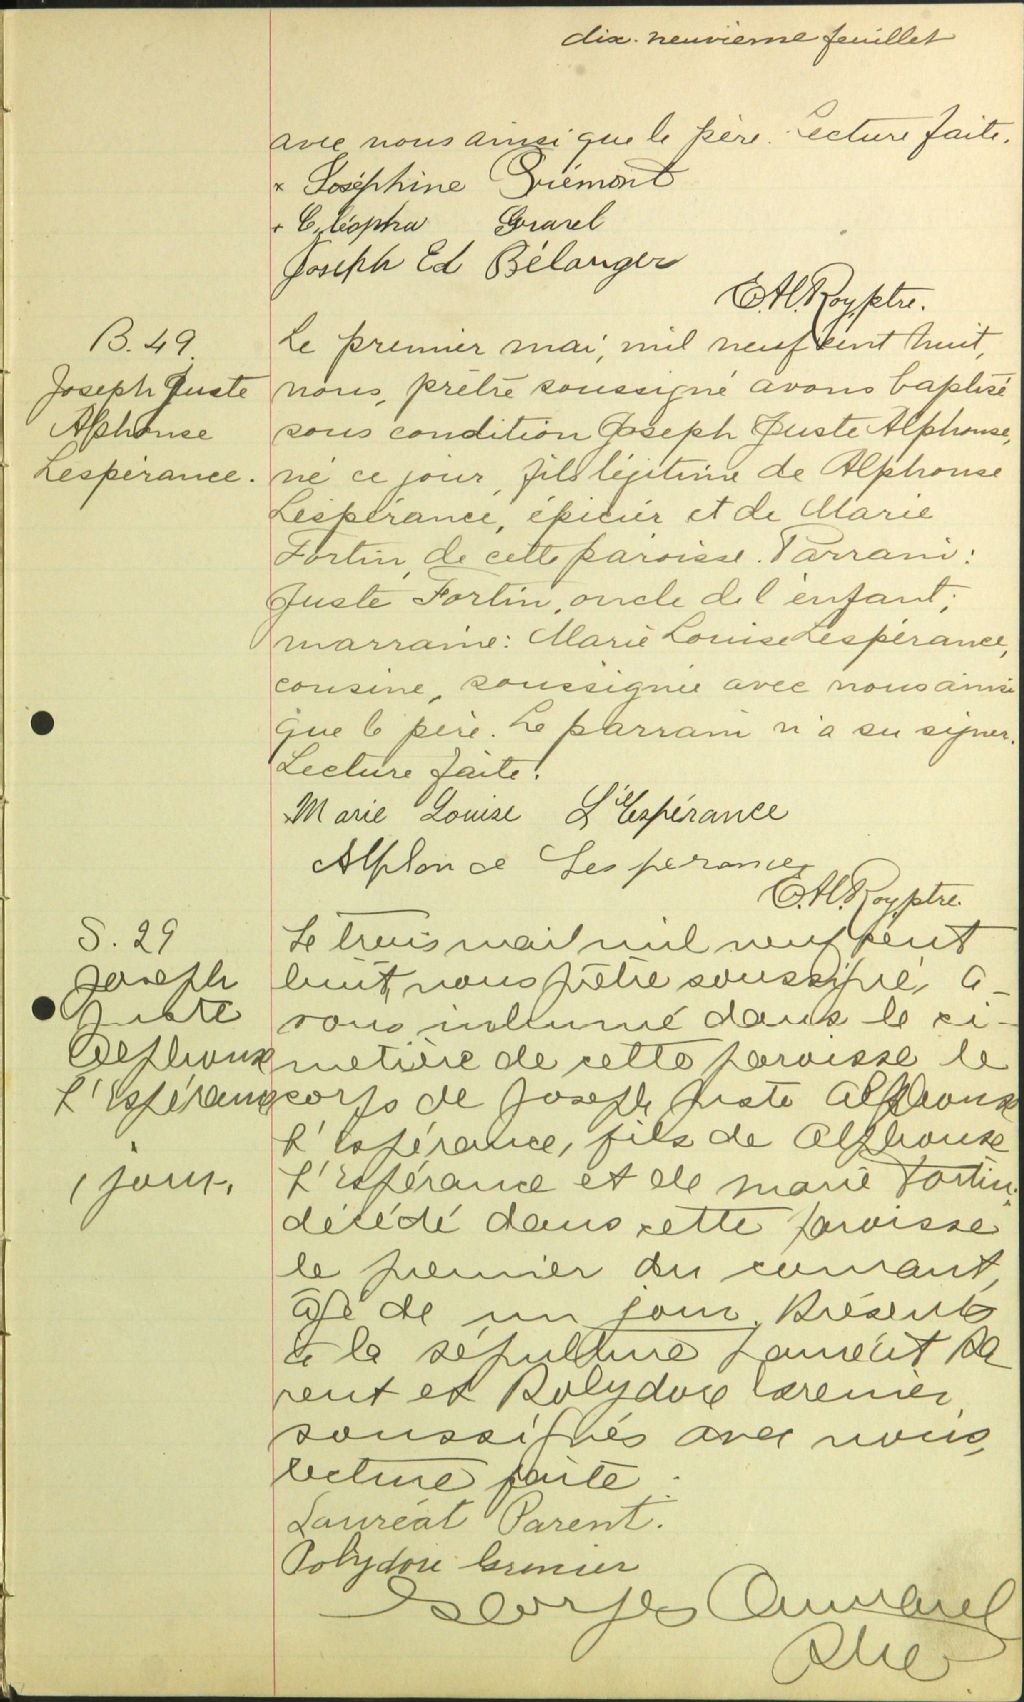 dix-neuvième feuillet
avec nous ainsi que le père. Lecture faite.
x Joséphine Priémont
+ Cléopha Girard
Joseph Ed Bélanger
E.H. Roy, ptre.
B. 49.
Joseph Juste
Alphonse
Lespérance.
Le premier mai, mil neuf cent huit,
nous, prêtre soussigné avons baptisé
sous condition Joseph Juste Alphonse,
né ce jour, fils légitime de Alphonse
Lespérance, épicier et de Marie
Fortin, de cette paroisse. Parrain:
Juste Fortin, oncle de l'enfant;
marraine: Marie Louise Lespérance,
cousine, soussignée avec nous ainsi
que le père. Le parrain n'a su signer.
Lecture faite.
Marie Louise L'Espérance
Alphonse Lesperance
E.H. Roy, ptre.
S. 29
Joseph
Juste
Alphonse
L'Espérance
1 jour.
Le trois mai mil neuf cent
huit, nous prêtre soussigné, a-
vons inhumé dans le ci-
metière de cette paroisse le
corps de Joseph Juste Alphonse
L'Espérance, fils de Alphonse
L'Espérance et de Marie Fortin,
décédé dans cette paroisse
le premier du courant,
âgé de un jour. Présents
à la sépulture Lauréat Pa
rent et Polydore Grenier,
soussignés avec nous,
lecture faite.
Lauréat Parent.
Polydore Grenier
Georges
Ptre